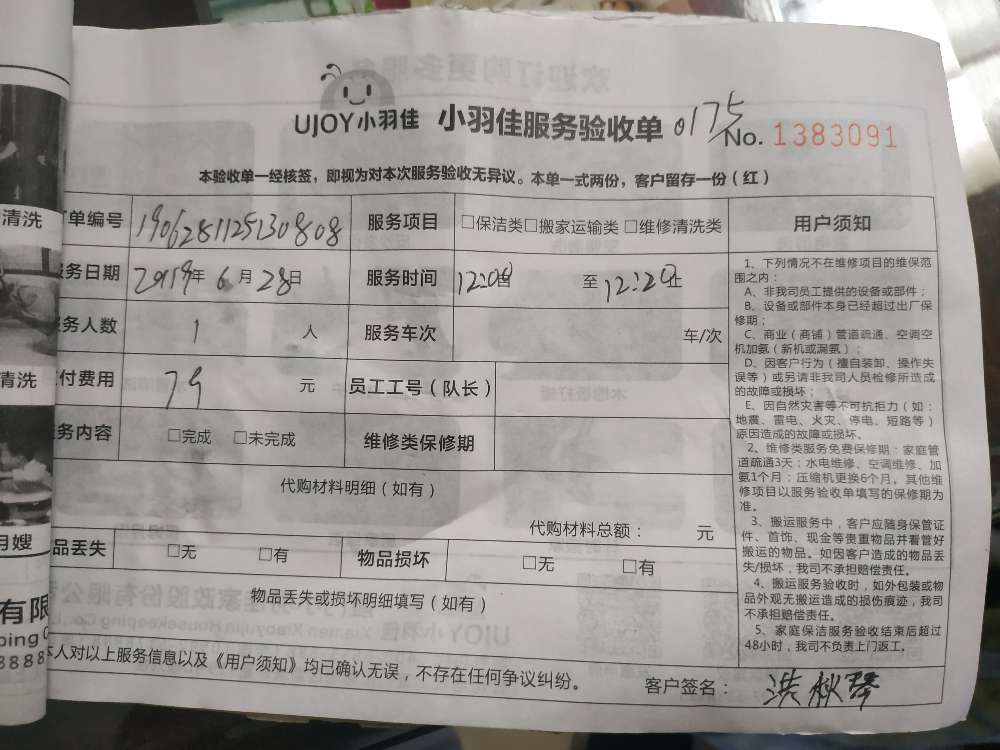 UJOY小羽佳 小羽佳服务验收单 0175 No. 1383091
本验收单一经核签，即视为对本次服务验收无异议。本单一式两份，客户留存一份（红）
清洗
订单编号 190628112513080808 服务项目 □保洁类□搬家运输类 □维修清洗类 用户须知
服务日期 2019年 6月 28日 服务时间 12:00 至 12:20止
服务人数 1 人 服务车次 车/次
清洗
应付费用 79 元 员工工号（队长）
服务内容 □完成 □未完成 维修类保修期
代购材料明细（如有）
代购材料总额： 元
月嫂
物品丢失 □无 □有 物品损坏 □无 □有
物品丢失或损坏明细填写（如有）
有限
ping
8888
本人对以上服务信息以及《用户须知》均已确认无误，不存在任何争议纠纷。
客户签名： 洪秋琴
1、下列情况不在维修项目的维保范
围之内：
A、非我司员工提供的设备或部件；
B、设备或部件本身已经超过出厂保
修期；
C、商业（商铺）管道疏通、空调空
机加氨（新机或漏氨）；
D、因客户行为（擅自装卸、操作失
误等）或另请非我司人员检修所造成
的故障或损坏；
E、因自然灾害等不可抗拒力（如：
地震、雷电、火灾、停电、短路等）
原因造成的故障或损坏。
2、维修类服务免费保修期：家庭管
道疏通3天；水电维修、空调维修、加
氨1个月；压缩机更换6个月。其他维
修项目以服务验收单填写的保修期为
准。
3、搬运服务中，客户应随身保管证
件、首饰、现金等贵重物品并看管好
搬运的物品。如因客户造成的物品丢
失/损坏，我司不承担赔偿责任。
4、搬运服务验收时，如外包装或物
品外观无搬运造成的损伤痕迹，我司
不承担赔偿责任。
5、家庭保洁服务验收结束后超过
48小时，我司不负责上门返工。